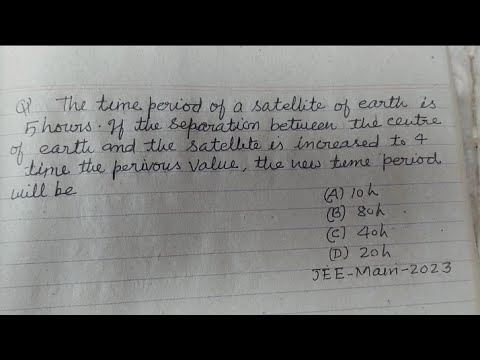 Q1 The time period of a satellite of earth is
5 hours. If the separation between the centre
of earth and the satellite is increased to 4
time the perivous value, the new time period
will be
(A) 10h
(B) 80h
(C) 40h
(D) 20h
JEE-Main-2023